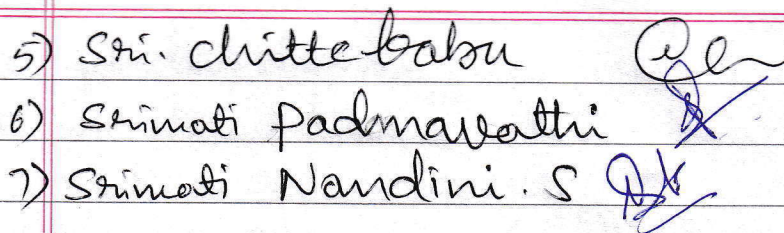 5) Sri. chittebabu
6) Srimati Padmavathi
7) Srimati Nandini. S